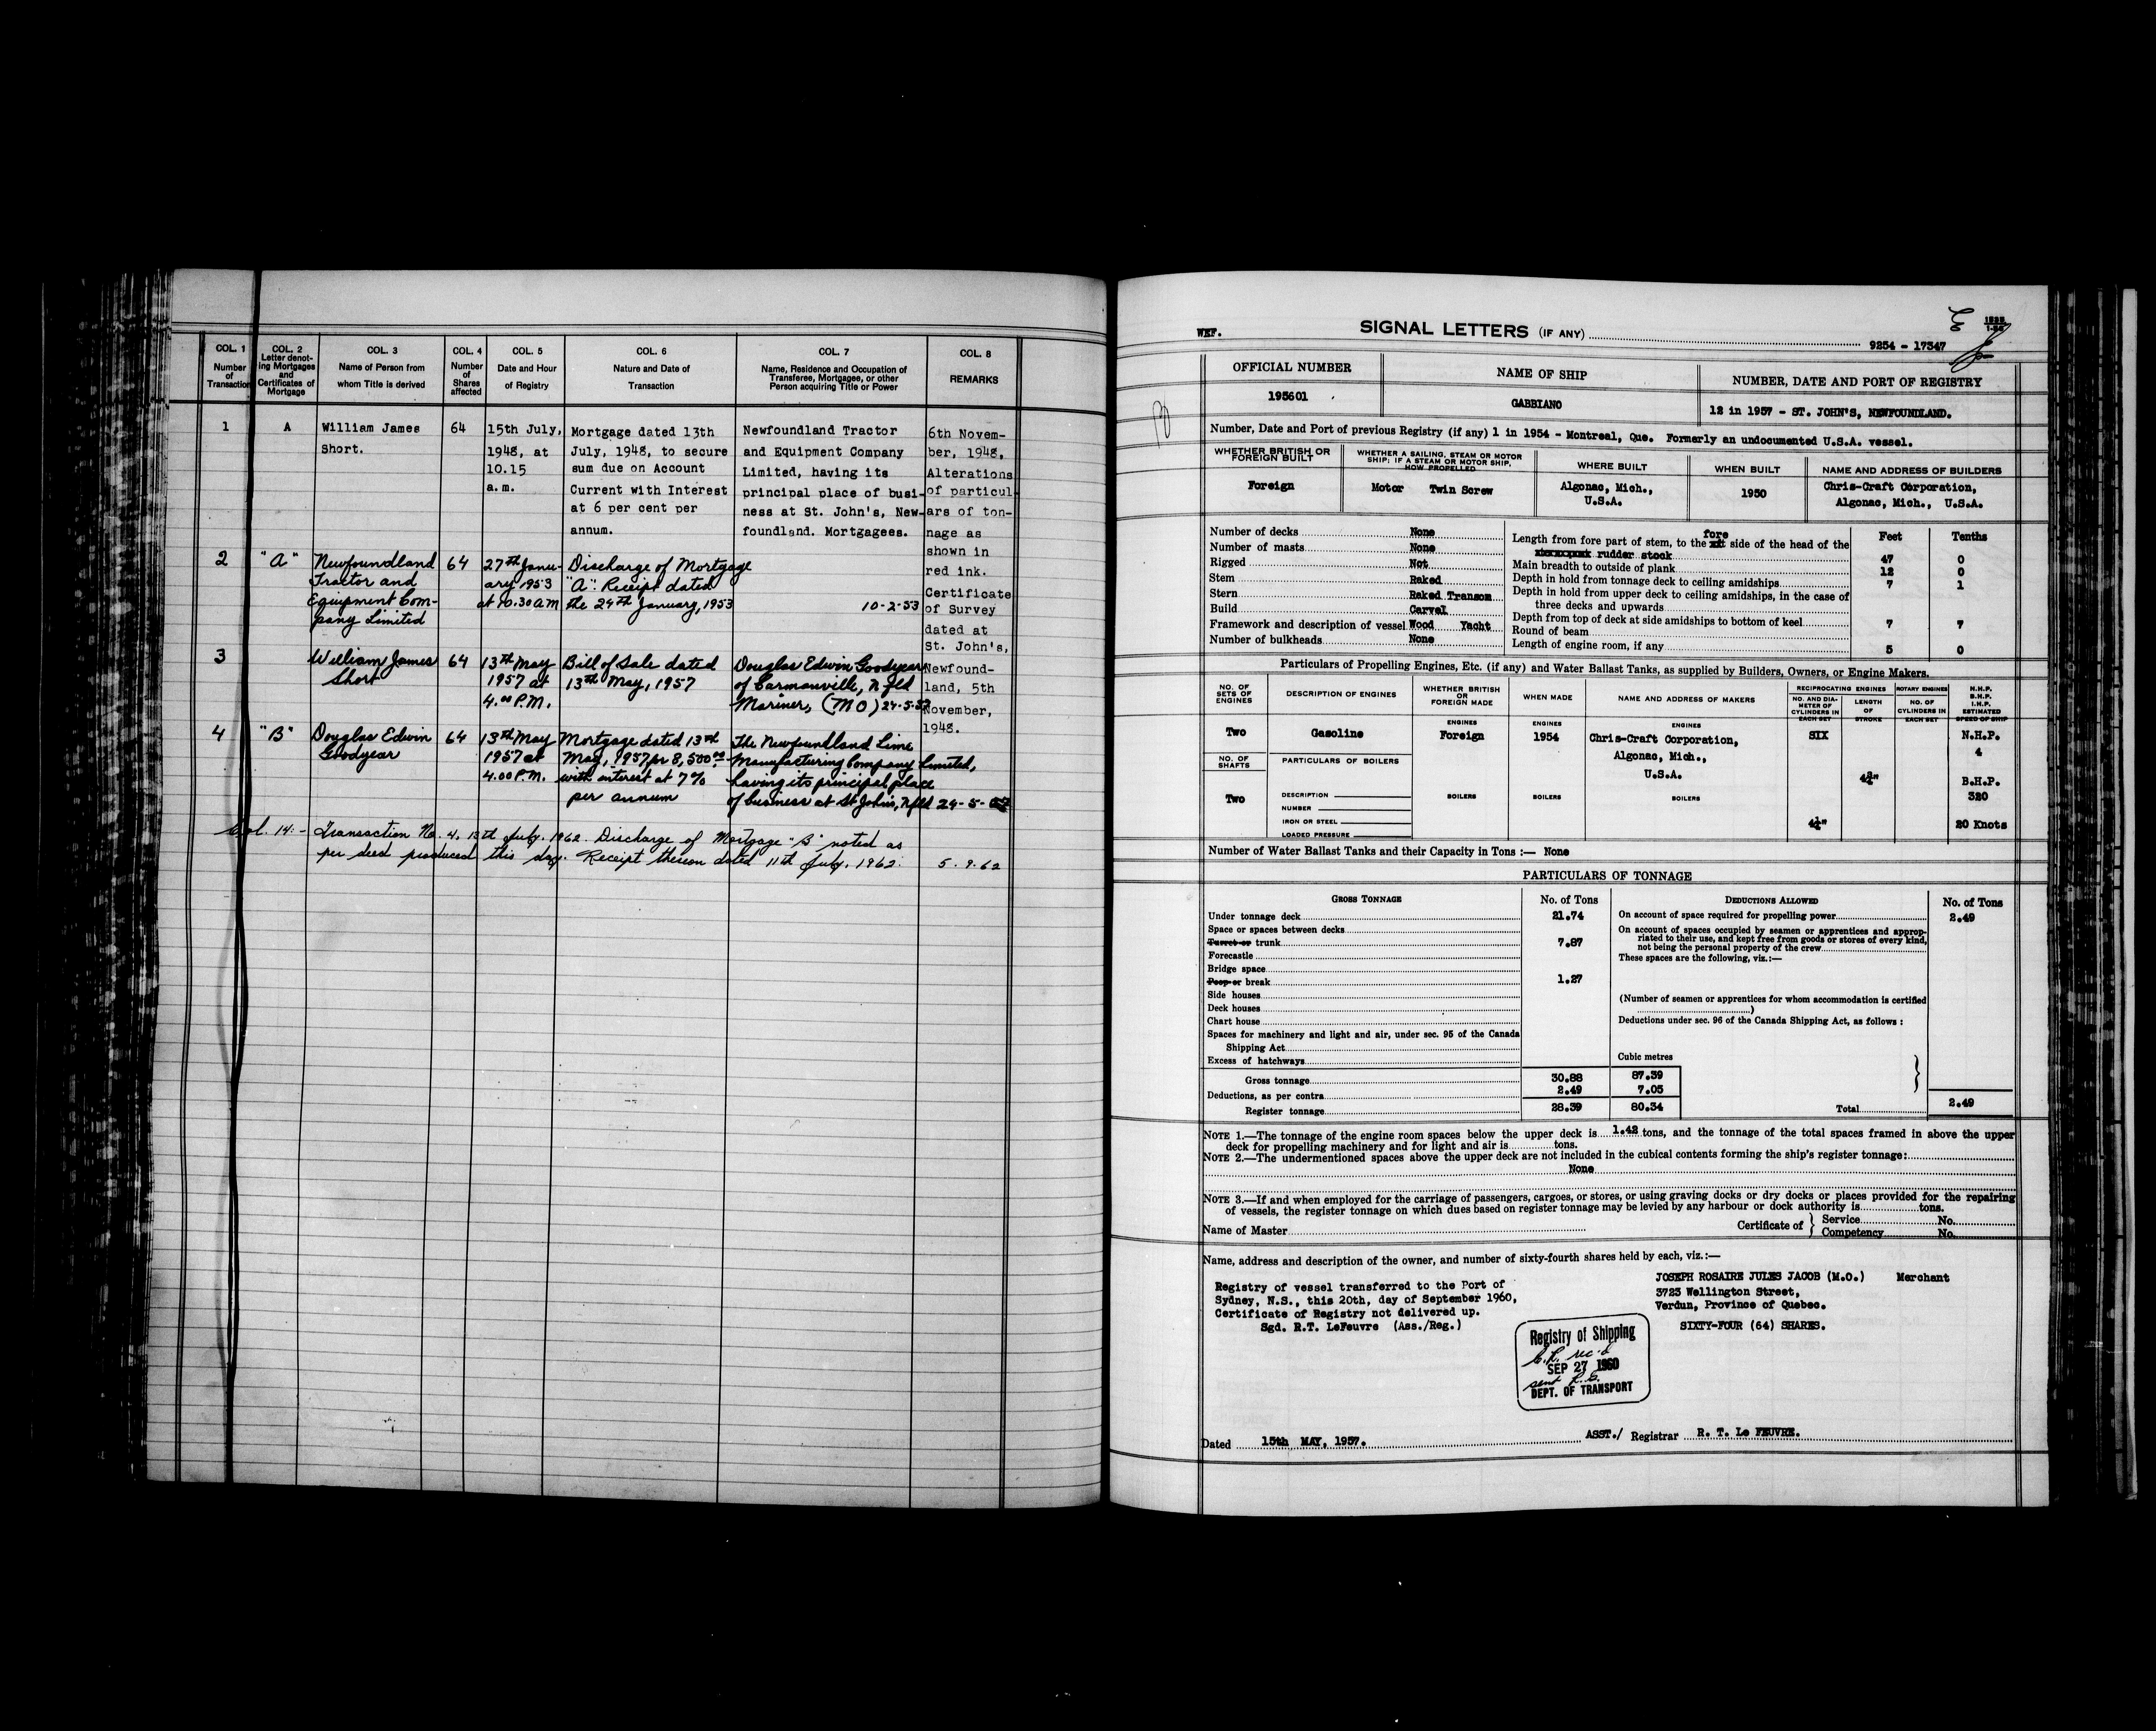 COL. 1
Number
of
Transaction
COL. 2
Letter denot-
ing Mortgages
and
Certificates of
Mortgage
COL. 3
Name of Person from
whom Title is derived
COL. 4
Number
of
Shares
affected
COL. 5
Date and Hour
of Registry
COL. 6
Nature and Date of
Transaction
COL. 7
Name, Residence and Occupation of
Transferee, Mortgagee, or other
Person acquiring Title or Power
COL. 8
REMARKS
1
A
William James
Short.
64
15th July,
1948, at
10.15
a.m.
Mortgage dated 13th
July, 1948, to secure
sum due on Account
Current with Interest
at 6 per cent per
annum.
Newfoundland Tractor
and Equipment Company
Limited, having its
principal place of busi-
ness at St. John's, New-
foundland. Mortgagees.
6th Novem-
ber, 1948,
Alterations
of particul-
ars of ton-
nage as
shown in
red ink.
Certificate
of Survey
dated at
St. John's,
Newfound-
land, 5th
November,
1948.
2
"A"
Newfoundland
Tractor and
Equipment Com-
pany Limited
64
27th Janu-
ary, 1953
at 10.30 AM
Discharge of Mortgage
"A": Receipt dated
the 24th January, 1953
10-2-53
3
William James
Short
64
13th May
1957 at
4.00 P.M.
Bill of Sale dated
13th May, 1957
Douglas Edwin Goodyear
of Carmanville, Nfld
Mariner, (MO) 24-5-57
4
"B"
Douglas Edwin
Goodyear
64
13th May
1957 at
4.00 P.M.
Mortgage dated 13th
May, 1957 for 8,500.00
with interest at 7%
per annum
The Newfoundland Lime
Manufacturing Company Limited,
having its principal place
of business at St John's, Nfld 24-5-57
Col. 14:- Transaction No. 4. 13th July. 1962. Discharge of Mortgage "B" noted as
per deed produced this day. Receipt thereon dated 11th July, 1962. 5.9.62
WEF.
SIGNAL LETTERS (IF ANY)
9254 - 17347
OFFICIAL NUMBER
195601
NAME OF SHIP
GABBIANO
NUMBER, DATE AND PORT OF REGISTRY
12 in 1957 - ST. JOHN'S, NEWFOUNDLAND.
Number, Date and Port of previous Registry (if any) 1 in 1954 - Montreal, Que. Formerly an undocumented U.S.A. vessel.
WHETHER BRITISH OR
FOREIGN BUILT
Foreign
WHETHER A SAILING, STEAM OR MOTOR
SHIP; IF A STEAM OR MOTOR SHIP,
HOW PROPELLED
Motor Twin Screw
WHERE BUILT
Algonac, Mich.,
U.S.A.
WHEN BUILT
1950
NAME AND ADDRESS OF BUILDERS
Chris-Craft Corporation,
Algonac, Mich., U.S.A.
Number of decks None
Number of masts None
Rigged Not
Stem Raked
Stern Raked Transom
Build Carvel
Framework and description of vessel Wood Yacht
Number of bulkheads None
Feet Tenths
fore
Length from fore part of stem, to the side of the head of the
rudder stock 47 0
Main breadth to outside of plank 12 0
Depth in hold from tonnage deck to ceiling amidships 7 1
Depth in hold from upper deck to ceiling amidships, in the case of
three decks and upwards
Depth from top of deck at side amidships to bottom of keel 7 7
Round of beam
Length of engine room, if any 5 0
Particulars of Propelling Engines, Etc. (if any) and Water Ballast Tanks, as supplied by Builders, Owners, or Engine Makers.
NO. OF
SETS OF
ENGINES
DESCRIPTION OF ENGINES
WHETHER BRITISH
OR
FOREIGN MADE
WHEN MADE
NAME AND ADDRESS OF MAKERS
RECIPROCATING ENGINES
NO. AND DIA-
METER OF
CYLINDERS IN
EACH SET
LENGTH
OF
STROKE
ROTARY ENGINES
NO. OF
CYLINDERS IN
EACH SET
N.H.P.
B.H.P.
I.H.P.
ESTIMATED
SPEED OF SHIP
Two
Gasoline
ENGINES
Foreign
ENGINES
1954
ENGINES
Chris-Craft Corporation,
Algonac, Mich.,
U.S.A.
SIX
N.H.P.
4
NO. OF
SHAFTS
Two
PARTICULARS OF BOILERS
DESCRIPTION
NUMBER
IRON OR STEEL
LOADED PRESSURE
BOILERS
BOILERS
BOILERS
4¼"
B.H.P.
320
20 Knots
Number of Water Ballast Tanks and their Capacity in Tons :— None
PARTICULARS OF TONNAGE
GROSS TONNAGE
No. of Tons
Under tonnage deck 21.74
Space or spaces between decks
Turret or trunk 7.87
Forecastle
Bridge space
Poop or break 1.27
Side houses
Deck houses
Chart house
Spaces for machinery and light and air, under sec. 95 of the Canada
Shipping Act
Excess of hatchways
Cubic metres
Gross tonnage 30.88 87.39
Deductions, as per contra 2.49 7.05
Register tonnage 28.39 80.34
DEDUCTIONS ALLOWED
No. of Tons
On account of space required for propelling power 2.49
On account of spaces occupied by seamen or apprentices and approp-
riated to their use, and kept free from goods or stores of every kind,
not being the personal property of the crew
These spaces are the following, viz.:—
(Number of seamen or apprentices for whom accommodation is certified
)
Deductions under sec. 96 of the Canada Shipping Act, as follows :
Total 2.49
NOTE 1.—The tonnage of the engine room spaces below the upper deck is 1.42 tons, and the tonnage of the total spaces framed in above the upper
deck for propelling machinery and for light and air is tons.
NOTE 2.—The undermentioned spaces above the upper deck are not included in the cubical contents forming the ship's register tonnage:
None
NOTE 3.—If and when employed for the carriage of passengers, cargoes, or stores, or using graving docks or dry docks or places provided for the repairing
of vessels, the register tonnage on which dues based on register tonnage may be levied by any harbour or dock authority is tons.
Name of Master
Certificate of
Service No.
Competency No.
Name, address and description of the owner, and number of sixty-fourth shares held by each, viz.:—
Registry of vessel transferred to the Port of
Sydney, N.S., this 20th, day of September 1960,
Certificate of Registry not delivered up.
Sgd. R.T. LeFeuvre (Ass./Reg.)
JOSEPH ROSAIRE JULES JACOB (M.O.) Merchant
3723 Wellington Street,
Verdun, Province of Quebec.
SIXTY-FOUR (64) SHARES.
Registry of Shipping
SEP 27 1960
DEPT. OF TRANSPORT
Dated 15th MAY, 1957.
ASST./ Registrar R. T. Le FEUVRE.